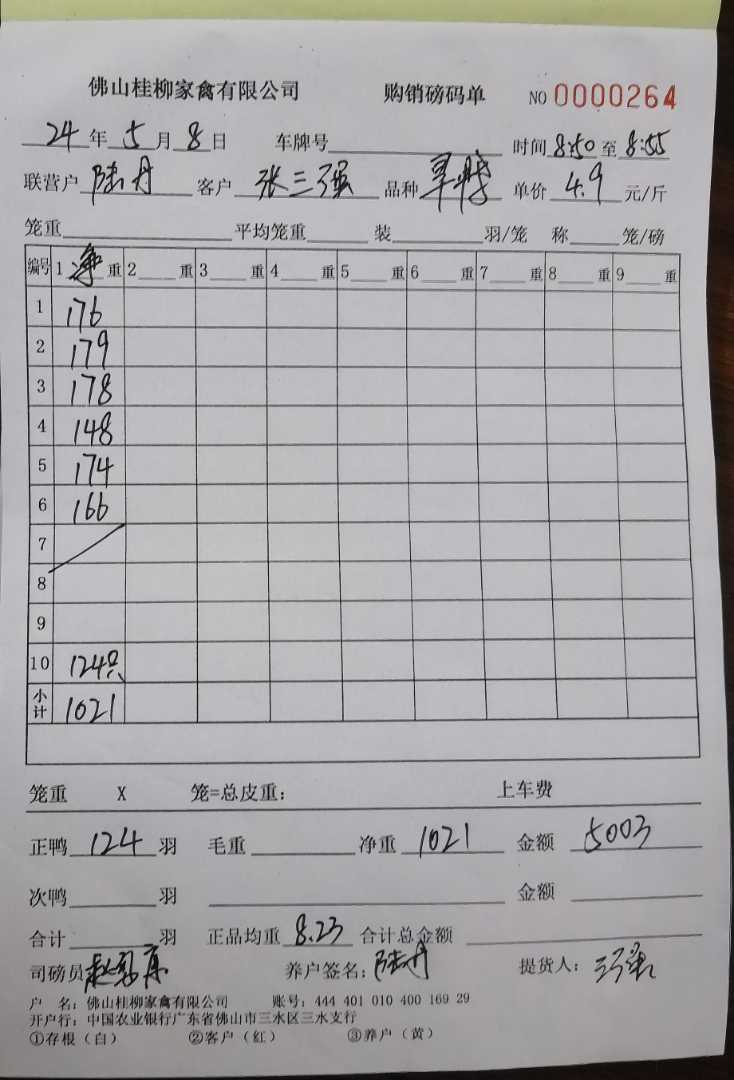 佛山桂柳家禽有限公司 购销磅码单 NO 0000264
24年5月8日 车牌号 时间8:50至8:55
联营户 陆丹 客户 张三强 品种 单价 4.9 元/斤
笼重 平均笼重 装 羽/笼 称 笼/磅
编号 1 净 重 2 重 3 重 4 重 5 重 6 重 7 重 8 重 9 重
1 176
2 179
3 178
4 148
5 174
6 166
7
8
9
10 124只
小计 1021
笼重 X 笼=总皮重: 上车费
正鸭 124 羽 毛重 净重 1021 金额 5003
次鸭 羽 金额
合计 羽 正品均重 8.23 合计总金额
司磅员 养户签名: 陆丹 提货人: 三强
户 名: 佛山桂柳家禽有限公司 账号: 444 401 010 400 169 29
开户行: 中国农业银行广东省佛山市三水区三水支行
①存根(白) ②客户(红) ③养户(黄)